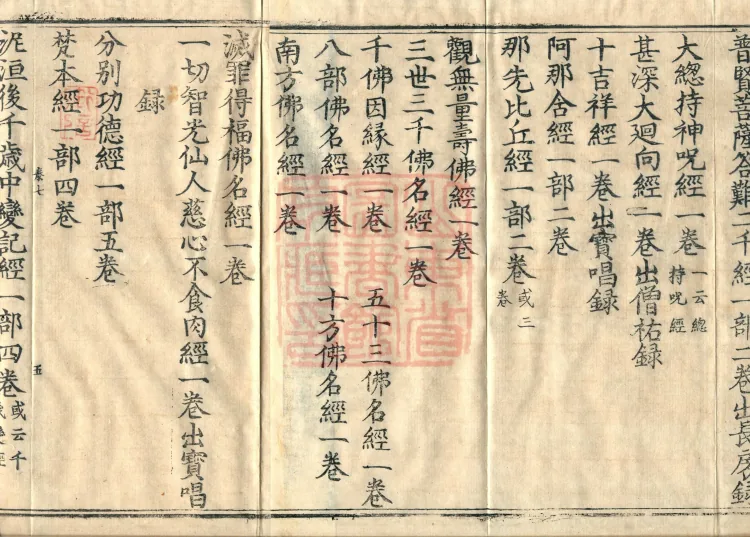 普賢菩薩答難二千經一部二卷出長房錄
大緫持神呪經一卷一云緫持呪經
甚深大迴向經一卷出僧祐録
十吉祥經一卷出寶唱録
阿那含經一部二卷
那先比丘經一部二卷或三卷
觀無量壽佛經一卷
三世三千佛名經一卷
千佛因緣經一卷 五十三佛名經一卷
八部佛名經一卷 十方佛名經一卷
南方佛名經一卷
滅罪得福佛名經一卷
一切智光仙人慈心不食肉經一卷出寶唱
録
分別功德經一部五卷
梵本經一部四卷
卷七 五
泥洹後千歲中變記經一部四卷或云千